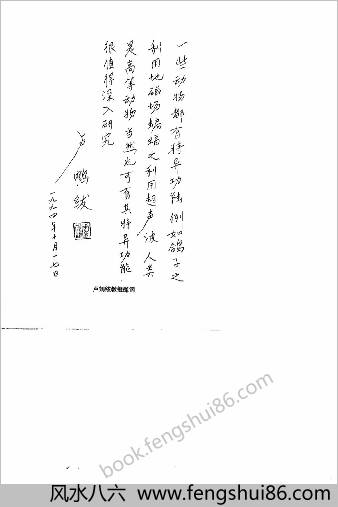 一些动物都有特异功能例如鸽子之
利用地磁场蝙蝠之利用超声波人类
是高等动物当然也可有其特异功能
很值得深入研究
卢鹤绂
一九九四年十月一七日
卢鹤绂教授题词
book.fengshui86.com
风水八六 www.fengshui86.com